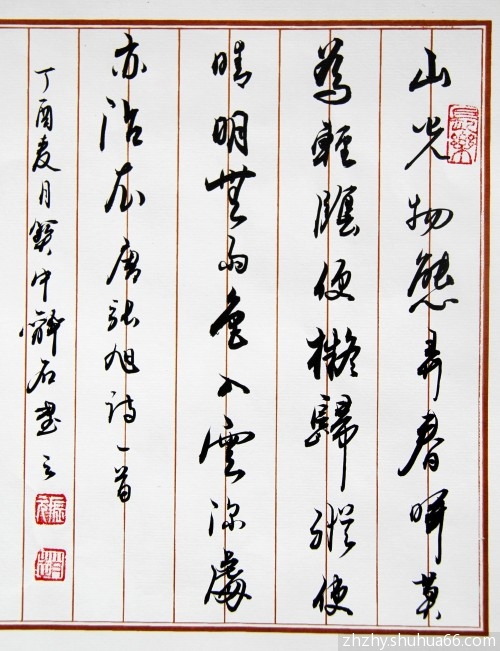 山光物態弄春暉莫
為輕陰便擬歸縱使
晴明無雨色入雲深處
亦沾衣 唐張旭詩一首
丁酉夏月 中醉石書之
長樂
zhzhy.shuhua66.com